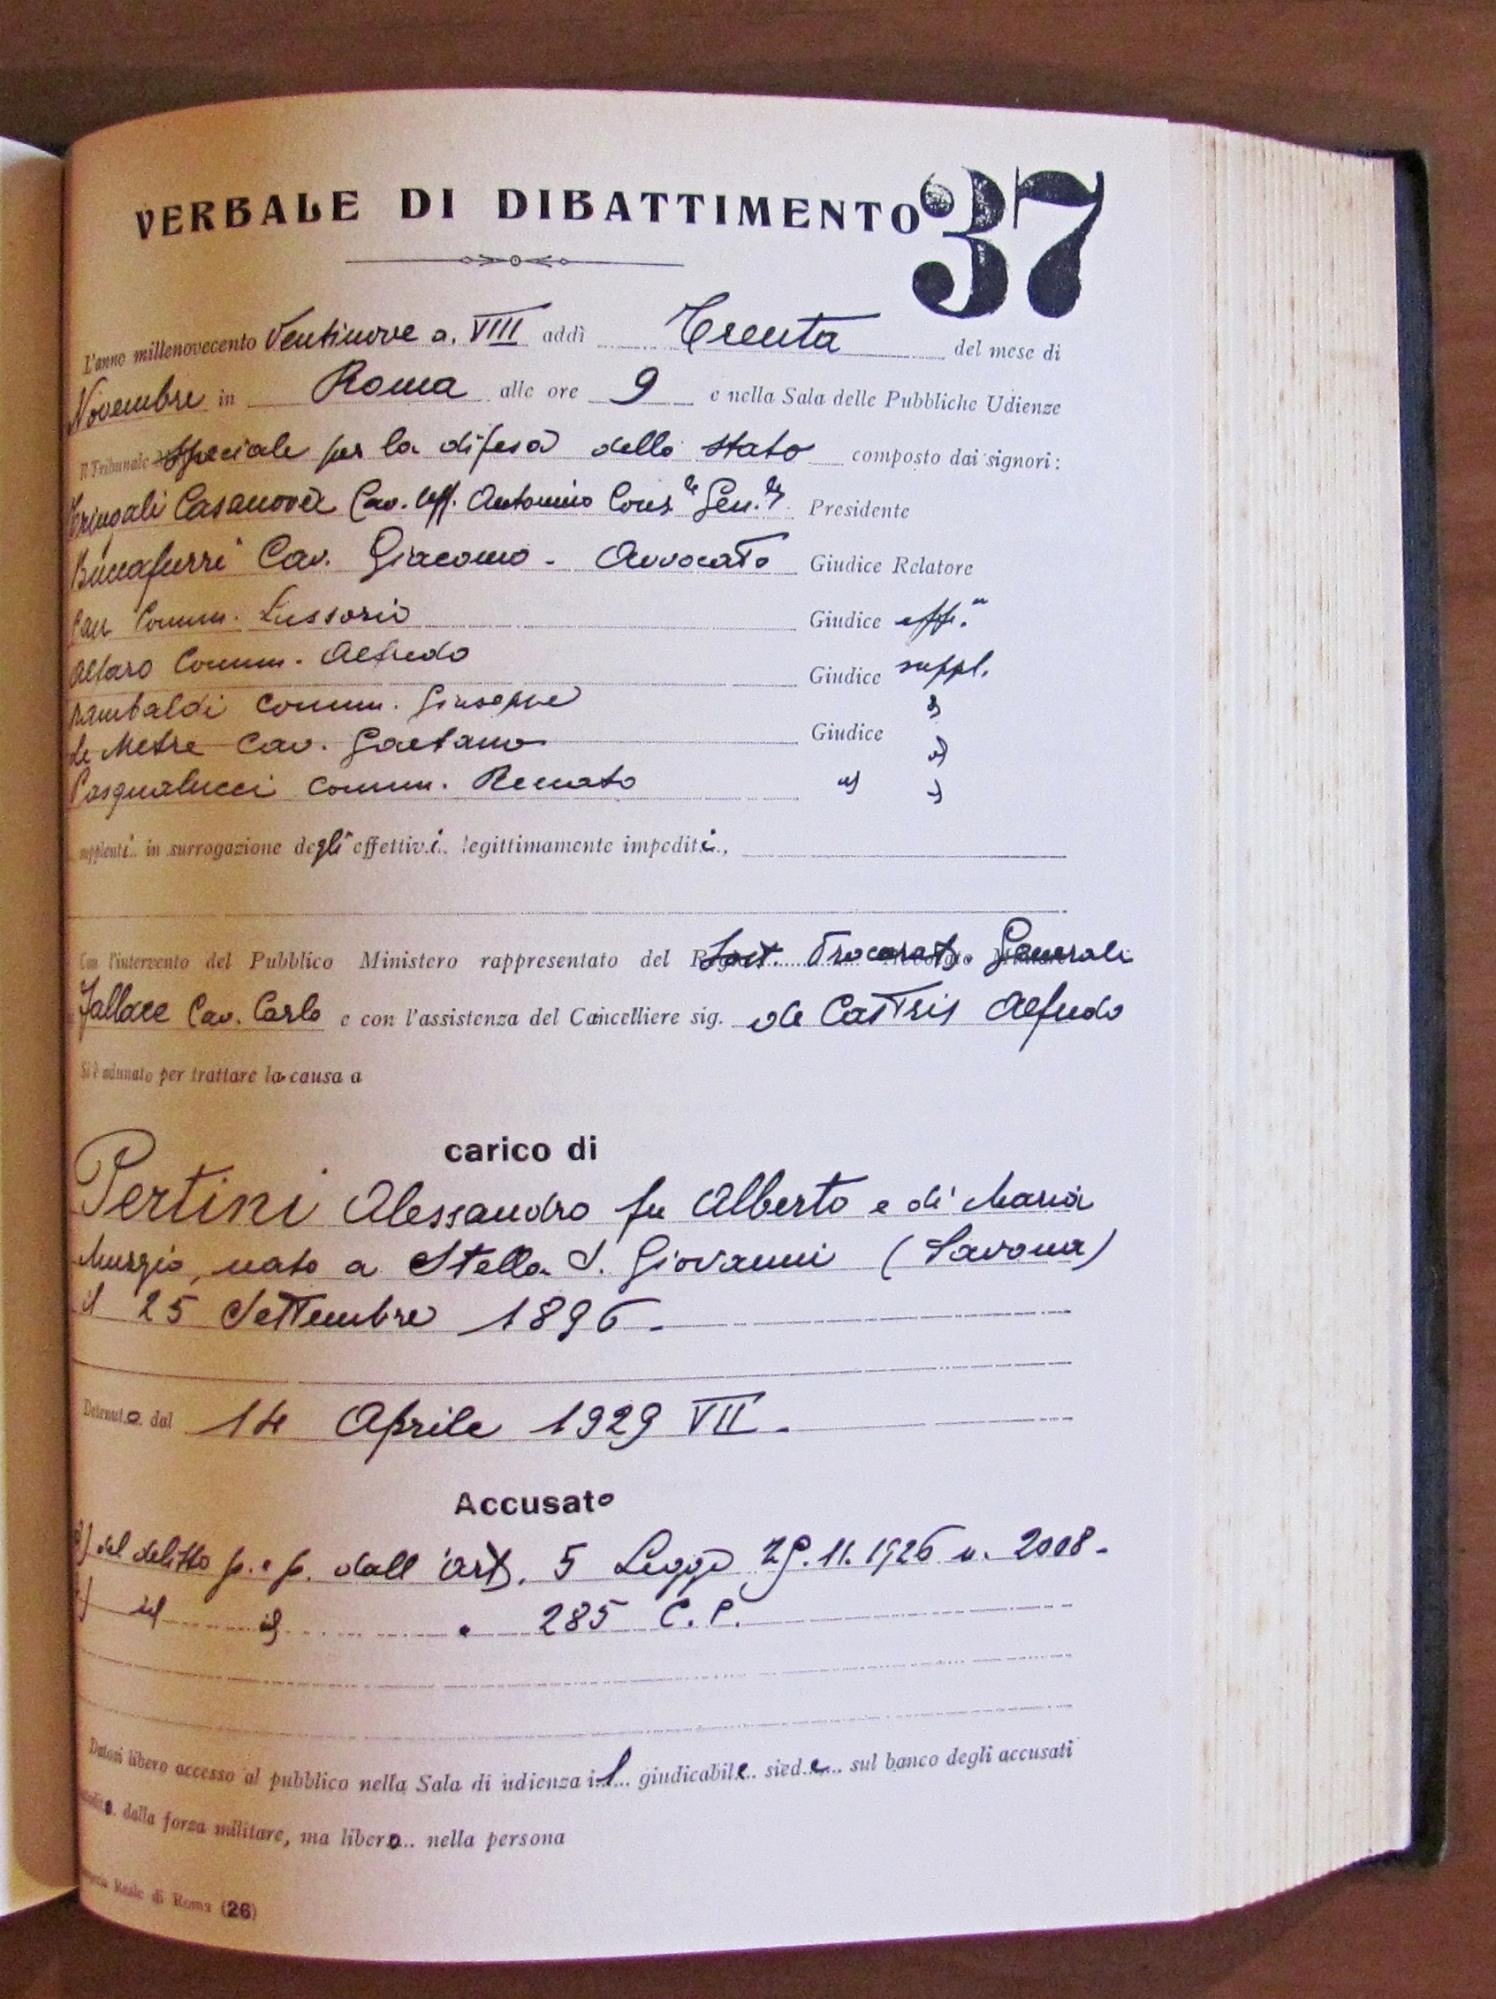 VERBALE DI DIBATTIMENTO 37
L'anno millenovecento Ventinove a. VIII addì Trenta del mese di
Novembre in Roma alle ore 9 e nella Sala delle Pubbliche Udienze
Il Tribunale Speciale per la difesa dello Stato composto dai signori:
Tringali Casanova Cav. Uff. Antonino Cons.re Gen.le Presidente
Buccafurri Cav. Giacomo - Avvocato Giudice Relatore
Cau Comm. Lussorio Giudice eff.
Alfaro Comm. Alfredo Giudice suppl.
Rambaldi Comm. Giuseppe
Le Metre Cav. Gaetano Giudice
Pasqualucci Comm. Renato
supplenti in surrogazione degli effettivi legittimamente impediti,
Con l'intervento del Pubblico Ministero rappresentato del Sost. Procurat. Generale
Fallace Cav. Carlo e con l'assistenza del Cancelliere sig. de Castris Alfredo
Si è adunato per trattare la causa a
carico di
Pertini Alessandro fu Alberto e di Maria
Murgio, nato a Stella S. Giovanni (Savona)
il 25 Settembre 1896.
Detenuto dal 14 Aprile 1929 VII.
Accusato
del delitto p. e p. dall'art. 5 Legge 25.11.1926 n. 2008.
id id " 285 C.P.
Datosi libero accesso al pubblico nella Sala di udienza il giudicabile siede sul banco degli accusati
dalla forza militare, ma libero nella persona
Reale di Roma (26)